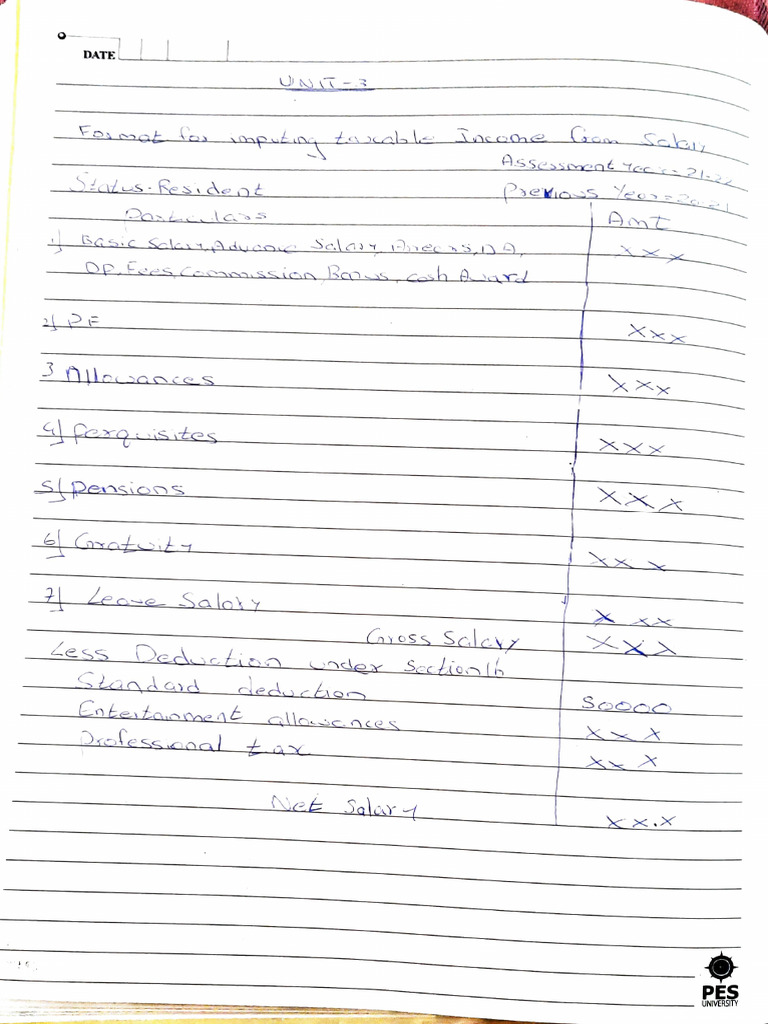 DATE
UNIT-3
Format for imputing taxable Income from Salary
Assessment Year = 21-22
Status-Resident
Previous Year = 20-21
Particulars
Amt
1) Basic Salary, Advance Salary, Arrears, DA,
XXX
DP, Fees, Commission, Bonus, cash Award
2) PF
XXX
3 Allowances
XXX
4) perquisites
XXX
5) pensions
XXX
6) Gratuity
XXX
7) Leave Salary
XXX
Gross Salary
XXX
Less Deduction under Section 16
Standard deduction
50000
Entertainment allowances
XXX
professional tax
XXX
Net Salary
XX.X
PES
UNIVERSITY